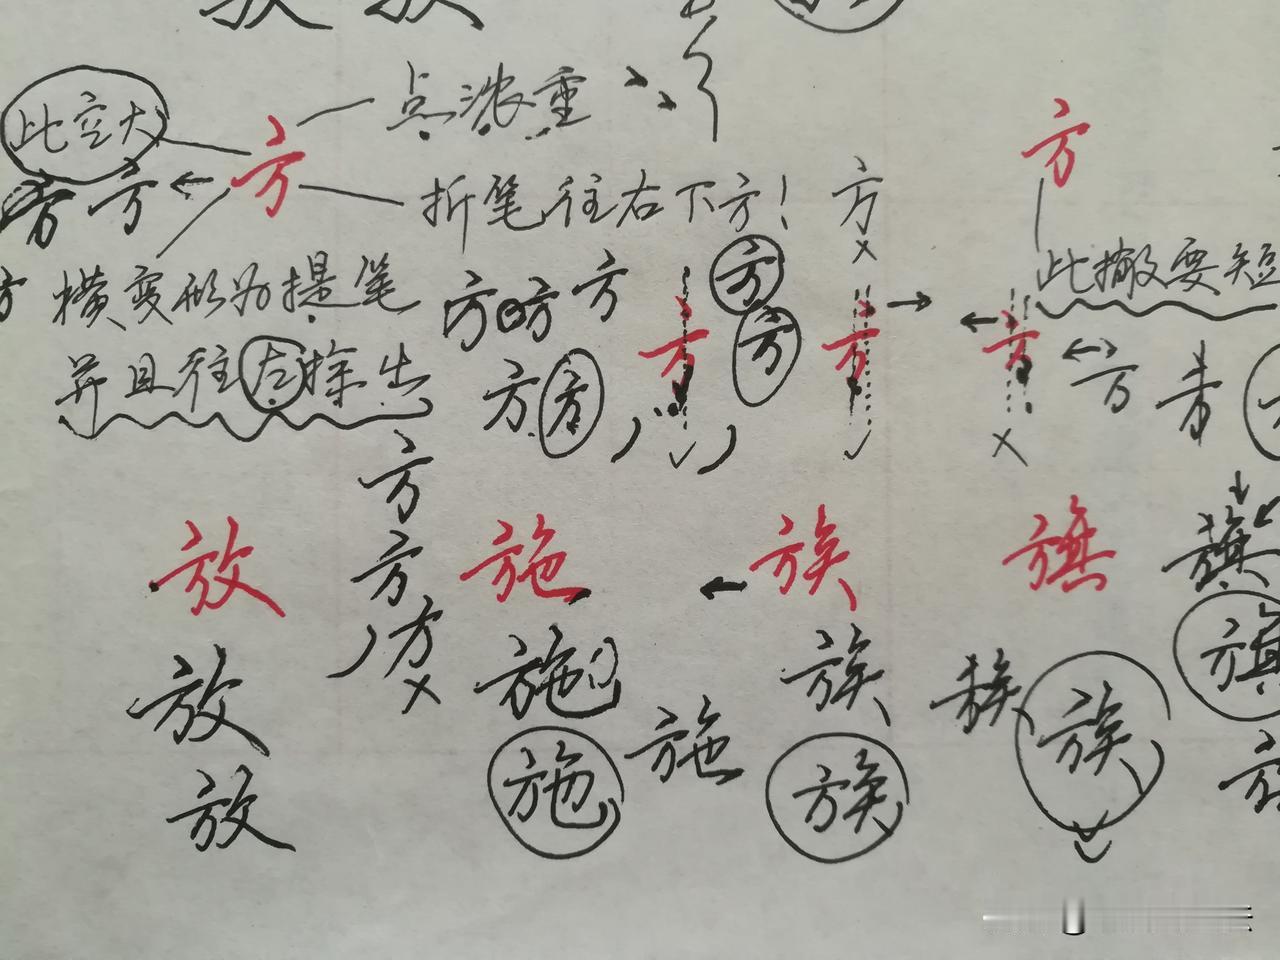 此空大
方
点浓重
方
方
方
折笔往右下方!
方
横变形为提笔
方方方
方
此撇要短
并且往左探出
方方
方
方
方
方
方
方
方
放
施
族
旗
旗
方
方
放
施
族
族
族
旗
放
施
施
族